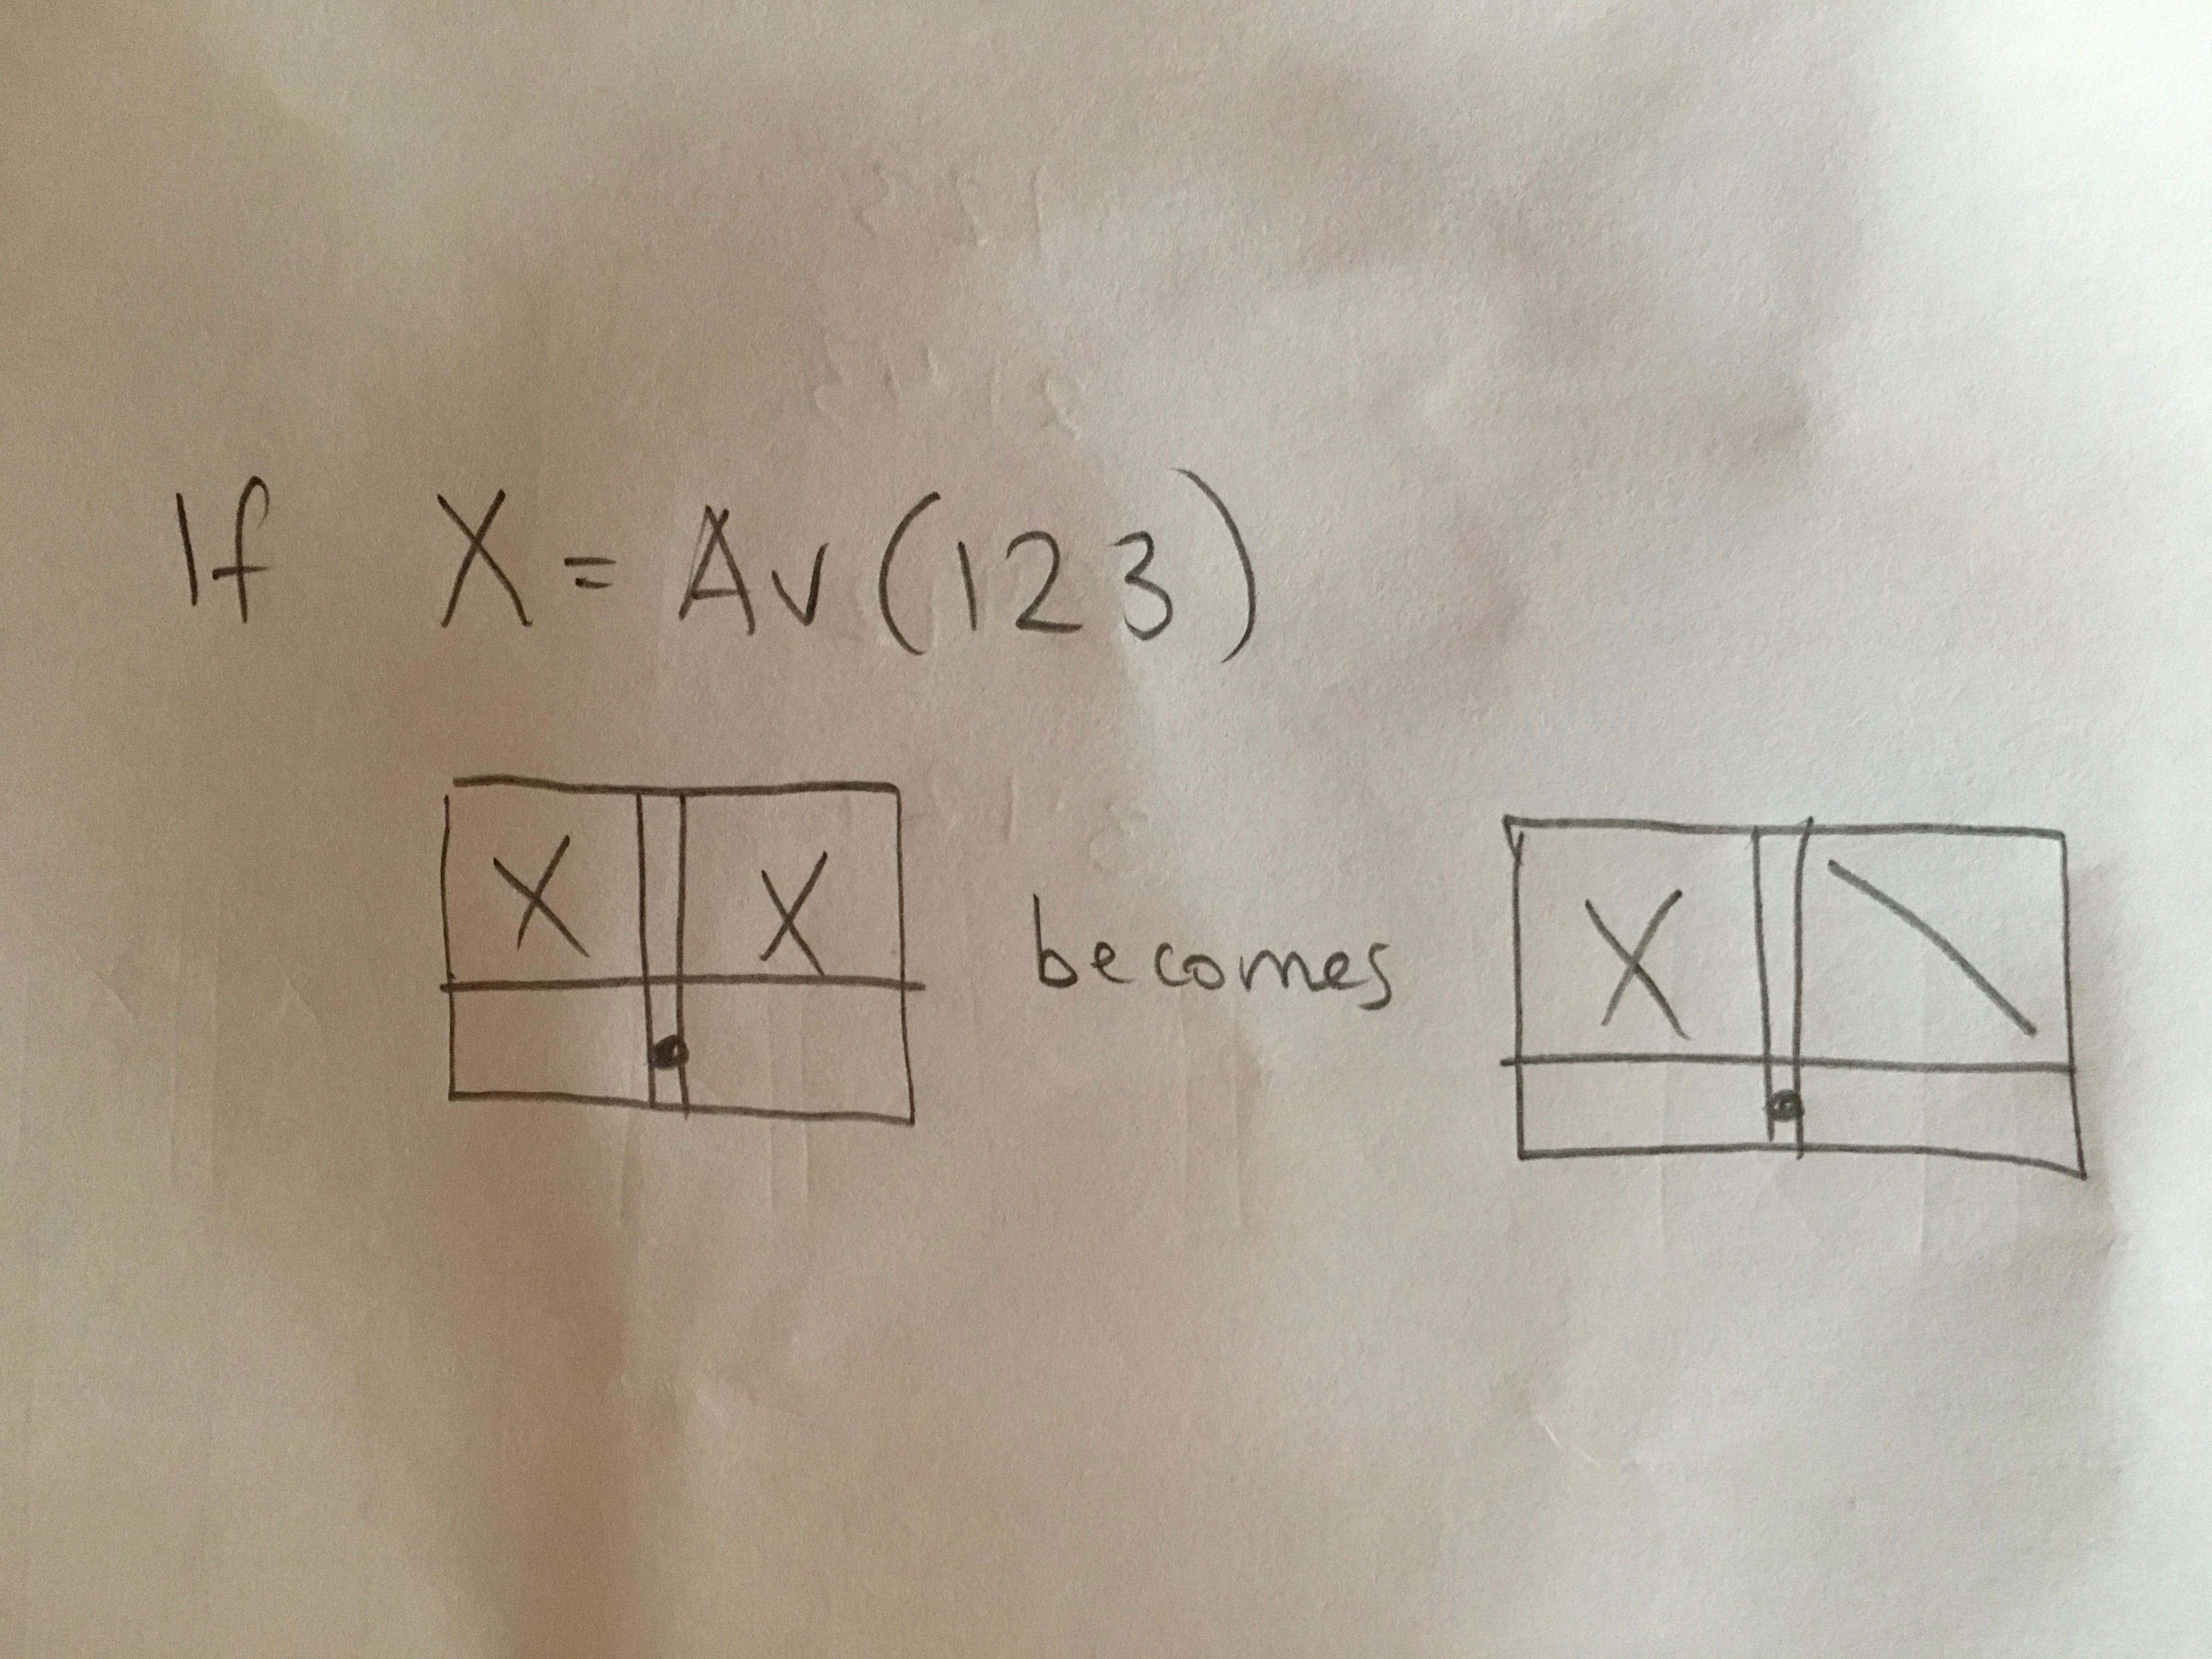 If X = Av(123)
X X becomes X